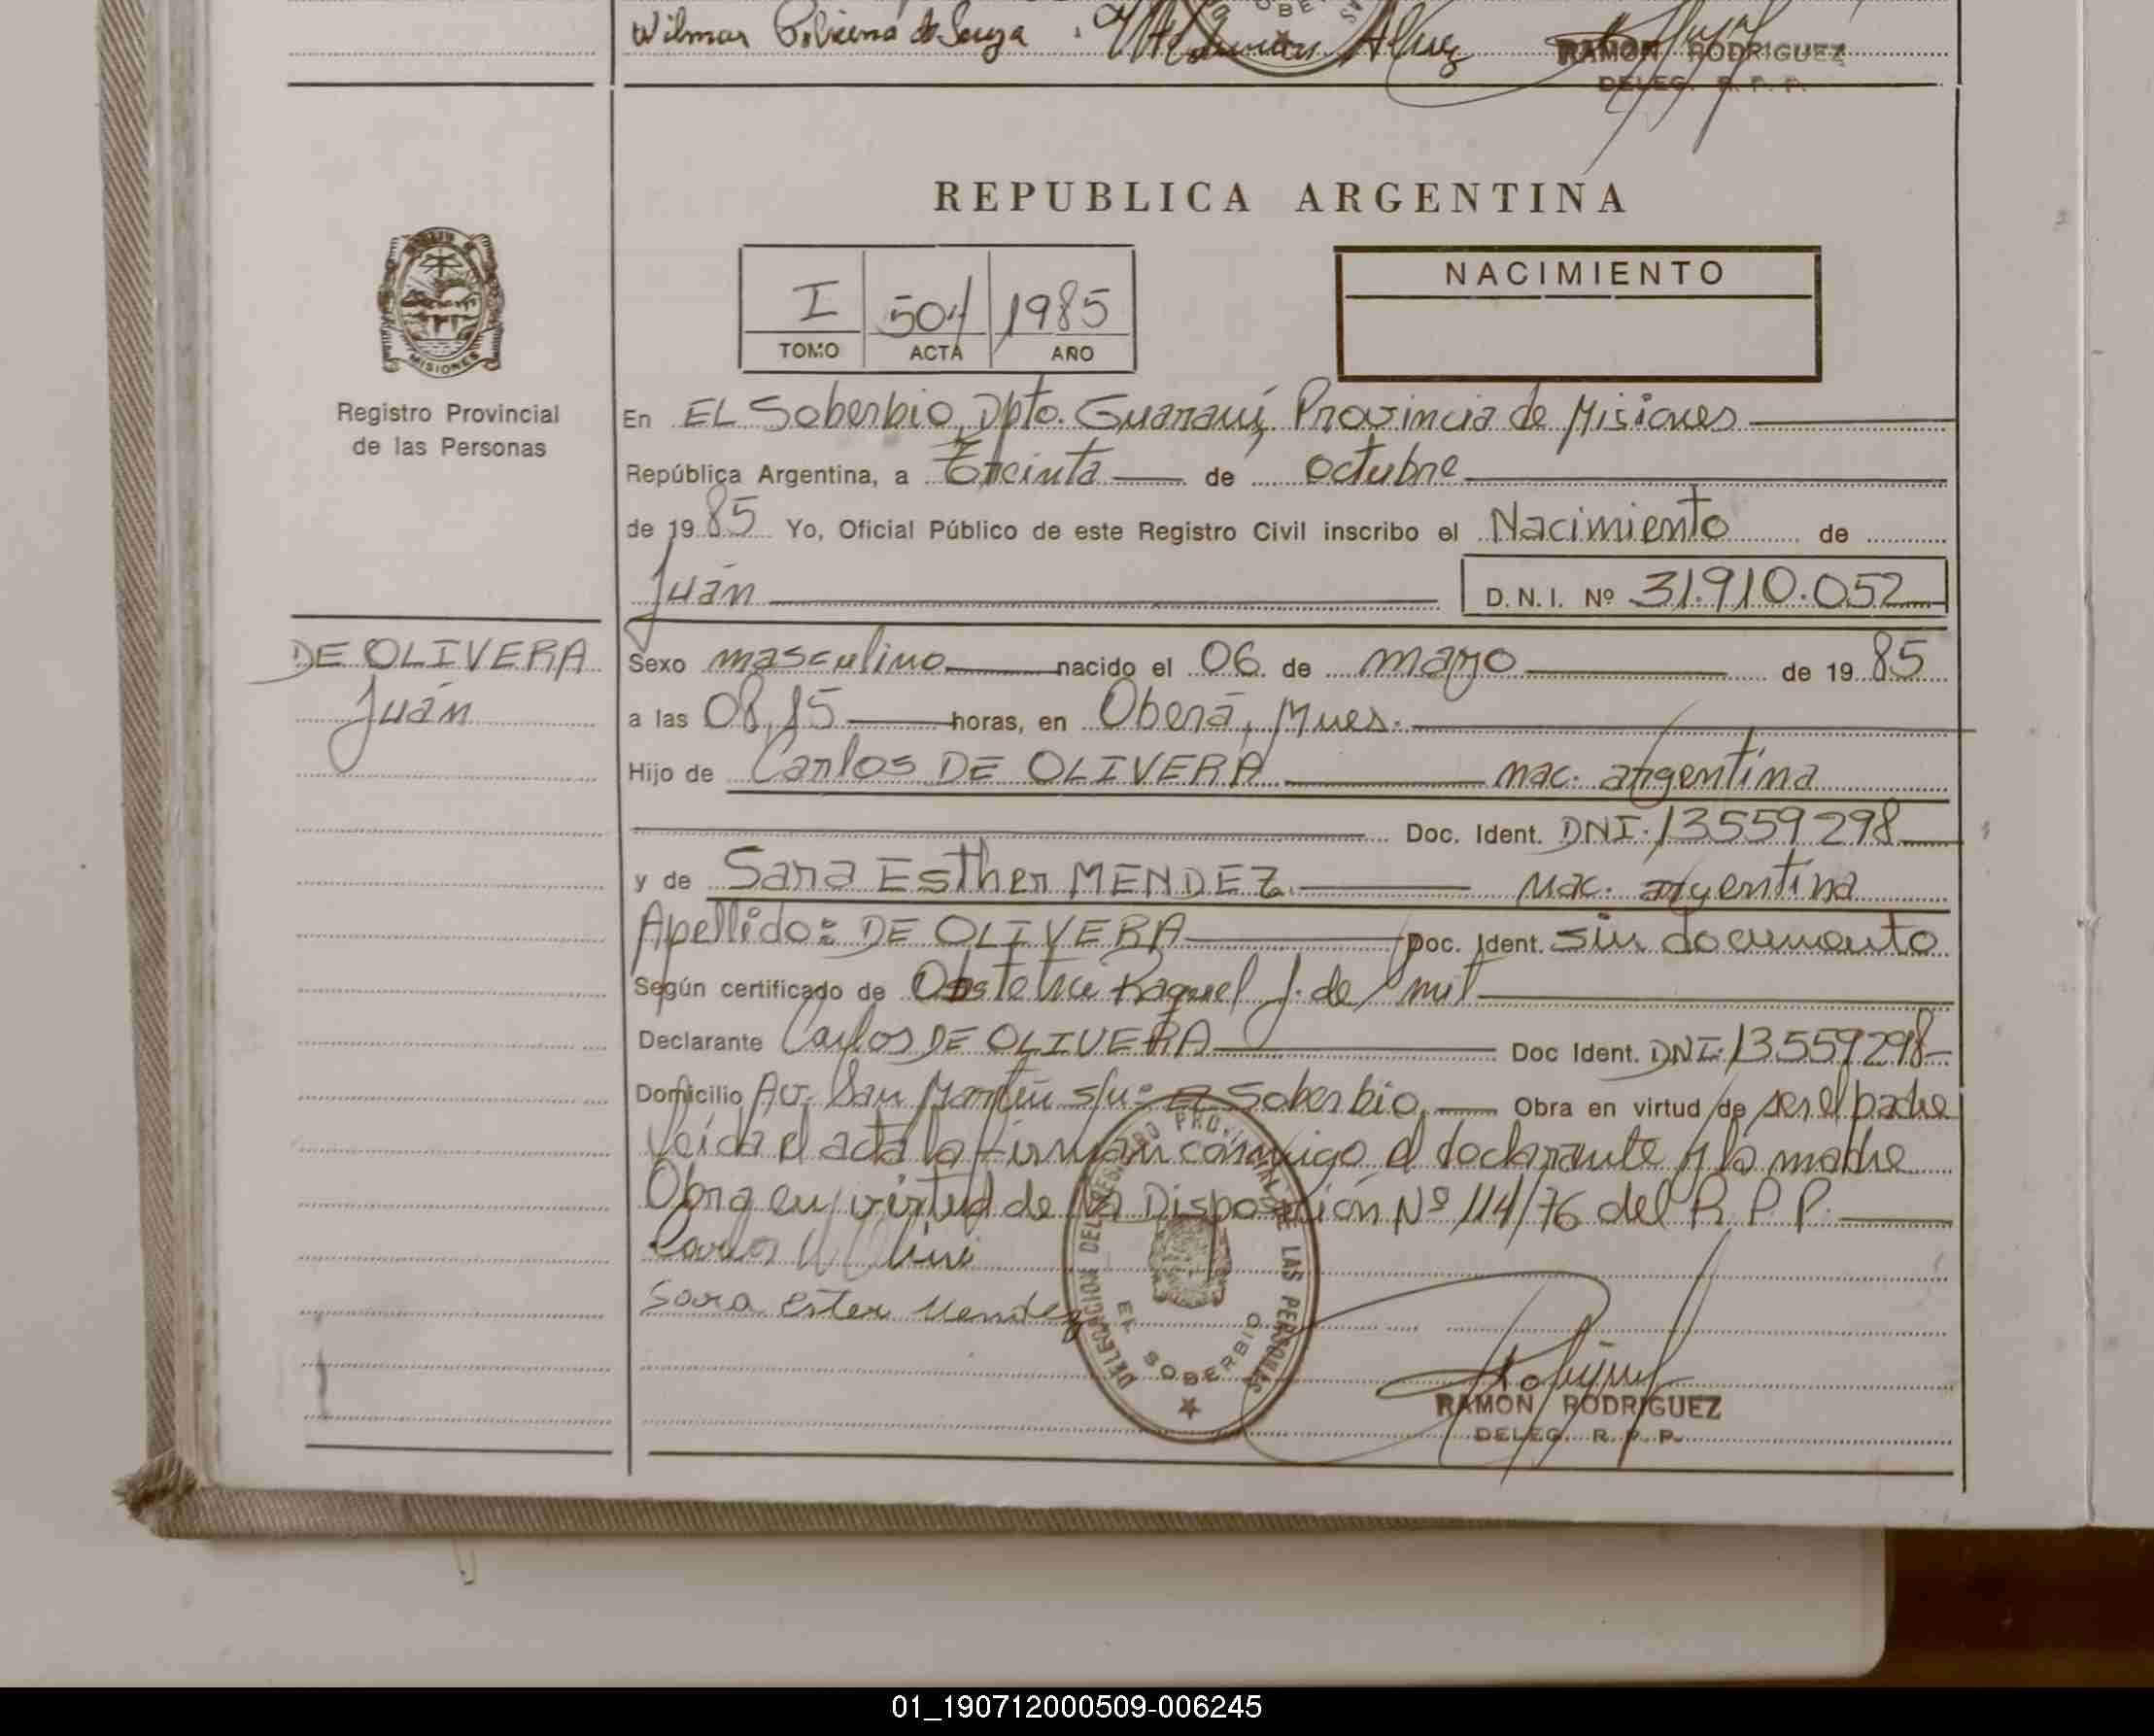 Wilmar
RAMON RODRIGUEZ
DELEG. R. P. P.
REPUBLICA ARGENTINA
I 504 1985
TOMO ACTA AÑO
NACIMIENTO
MISIONES
Registro Provincial
de las Personas
En EL Soberbio, Dpto. Guaraní, Provincia de Misiones
República Argentina, a Treinta de octubre
de 1985 Yo, Oficial Público de este Registro Civil inscribo el Nacimiento de
Juán
D. N. I. Nº 31.910.052
DE OLIVERA
Juán
Sexo masculino nacido el 06 de mayo de 1985
a las 08,15 horas, en Oberá, Mnes.
Hijo de Carlos DE OLIVERA nac. argentina
Doc. Ident. DNI. 13559298
y de Sara Esther MENDEZ. nac. argentina
Apellido: DE OLIVERA Doc. Ident. sin documento
Según certificado de Obstetrice Raquel J. de
Declarante Carlos DE OLIVERA Doc Ident. DNI. 13559298
Domicilio Av. San Martín s/n: El Soberbio. Obra en virtud de ser el padre
Leída el acta la firman conmigo el declarante y la madre
Obra en virtud de la Disposición Nº 114/76 del R. P. P.
Carlos
Sara Ester Mendez
DELEGACION DEL REGISTRO PROVINCIAL DE LAS PERSONAS
EL SOBERBIO
RAMON RODRIGUEZ
DELEG. R. P. P.
01_190712000509-006245